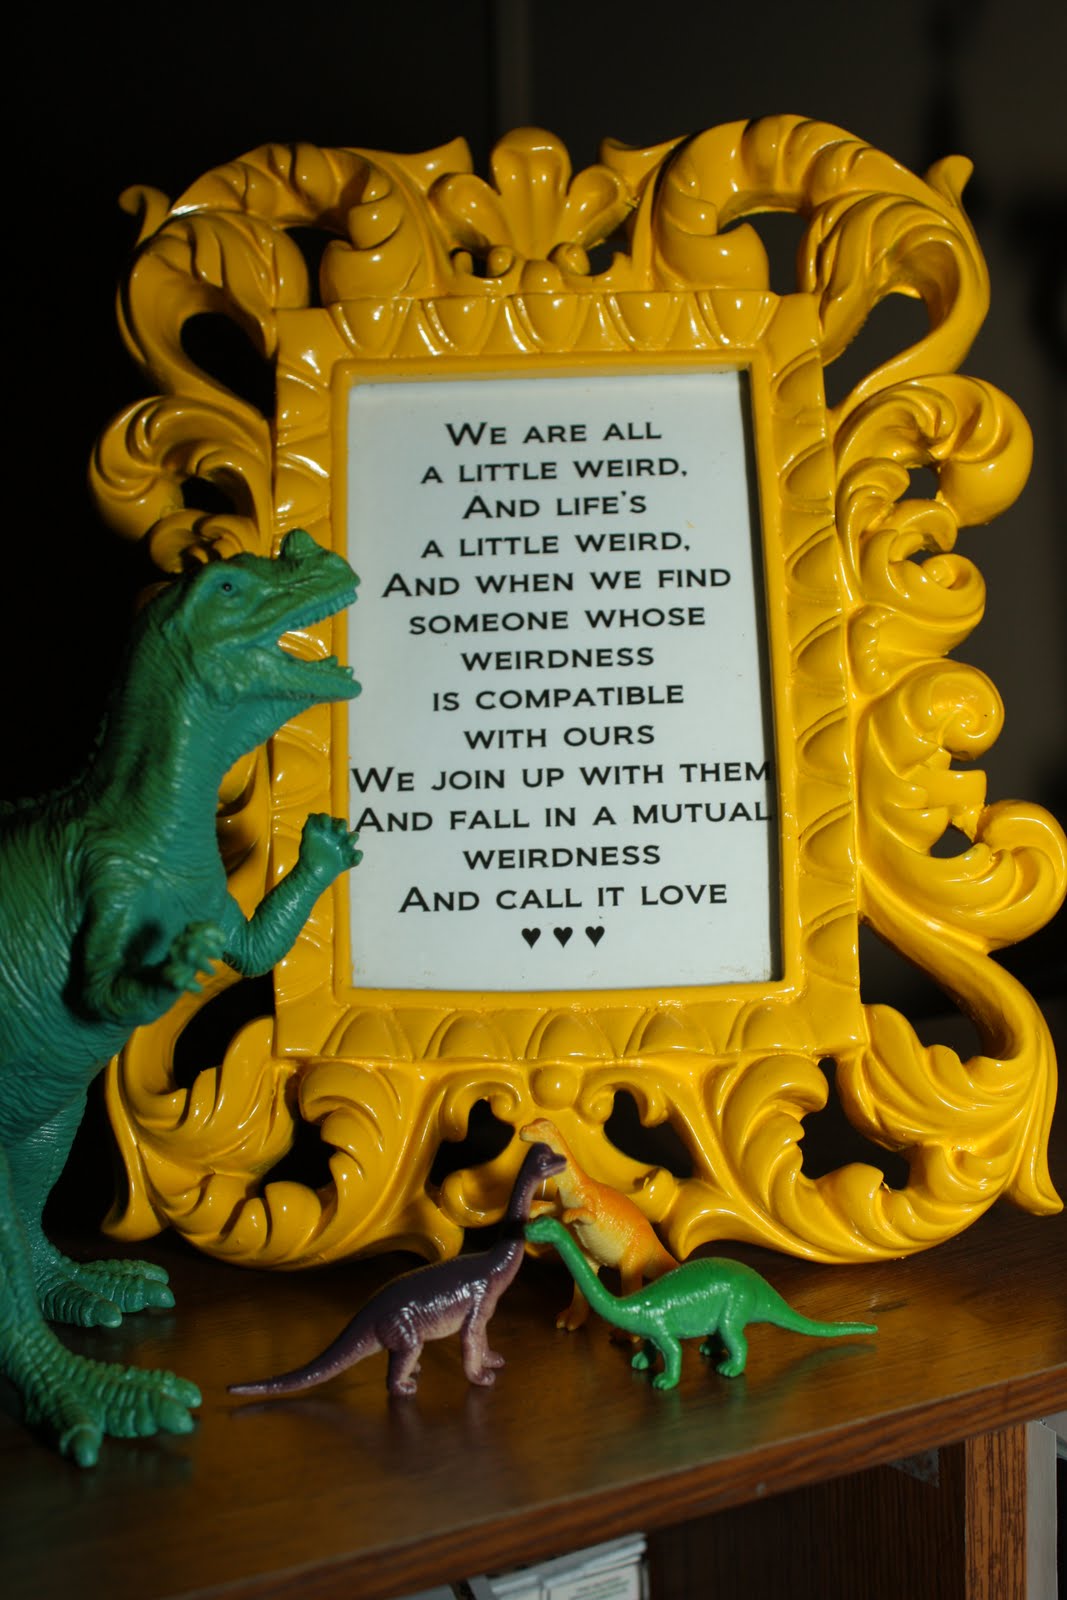 We are all
a little weird,
And life's
a little weird,
And when we find
someone whose
weirdness
is compatible
with ours
We join up with them
And fall in a mutual
weirdness
And call it love
♥♥♥